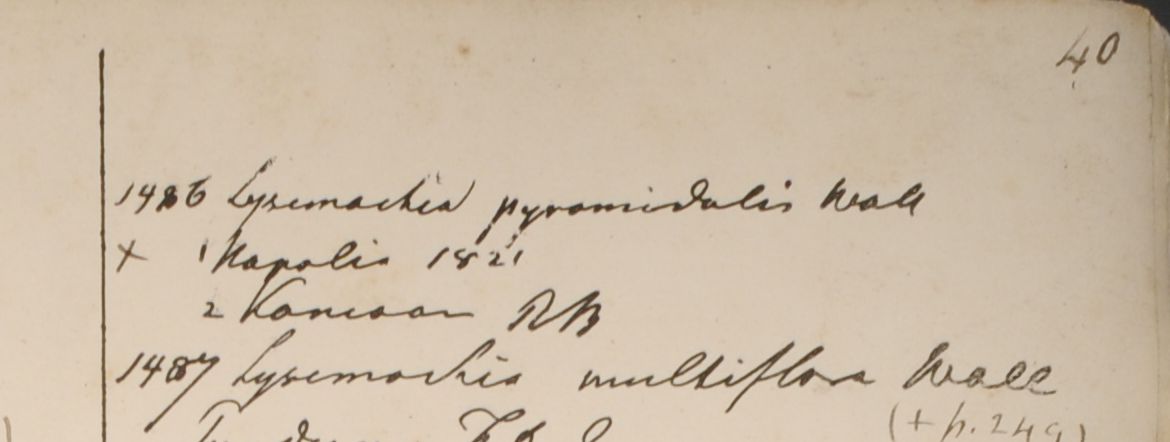 40
1486 Lysimachia pyramidalis Wall
+ 1 Napalia 1821
2 Kamaon RB
1487 Lysimachia multiflora Wall
(+ p. 249)